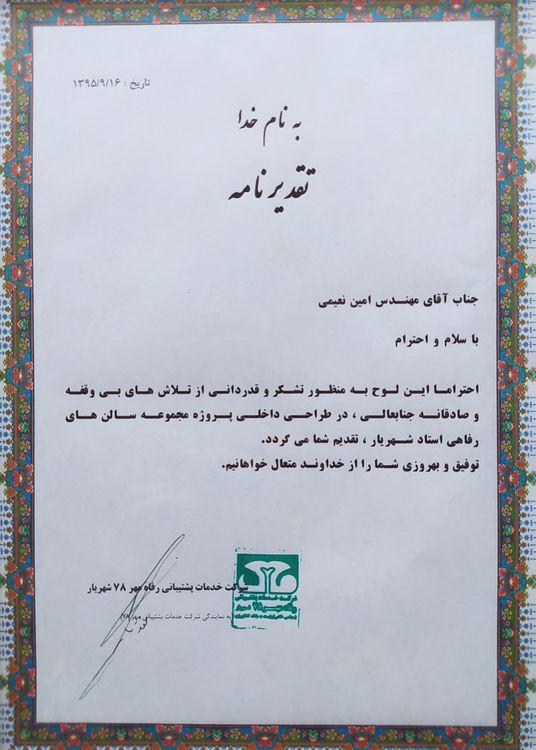 تاریخ : ۱۳۹۵/۹/۱۶
به نام خدا
تقدیرنامه
جناب آقای مهندس امین نعیمی
با سلام و احترام
احتراما این لوح به منظور تشکر و قدردانی از تلاش های بی وقفه
و صادقانه جنابعالی ، در طراحی داخلی پروژه مجموعه سالن های
رفاهی استاد شهریار ، تقدیم شما می گردد.
توفیق و بهروزی شما را از خداوند متعال خواهانیم.
شرکت خدمات پشتیبانی رفاه مهر ۷۸ شهریار
به نمایندگی شرکت خدمات پشتیبانی مهر ۷۸